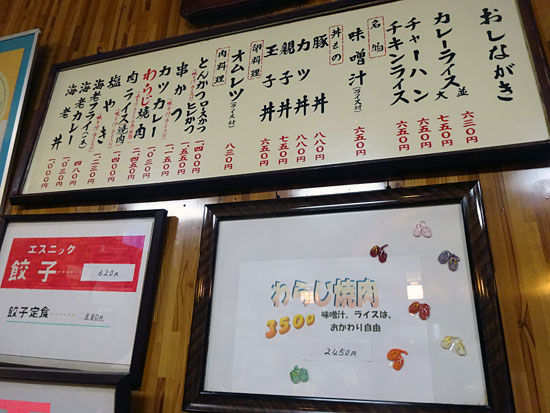 おしながき
カレーライス 並 六三〇円
大 七五〇円
チャーハン 六五〇円
チキンライス 六五〇円
名物
味噌汁(ライス付) 六五〇円
丼もの
豚丼 八八〇円
カツ丼 八八〇円
親子丼 七五〇円
玉子丼 六五〇円
卵料理
オムレツ(ライス付) 八三〇円
肉料理
とんかつ ロースかつ ヒレかつ 一四〇〇円
串かつ
カツカレー
わらじ焼肉
肉ライス
塩やき
海老フライ
海老カレー 一〇三〇円
海老丼 一〇〇〇円
エスニック
餃子 620円
餃子定食 880円
わらじ焼肉
350g
味噌汁、ライスは、
おかわり自由
2450円